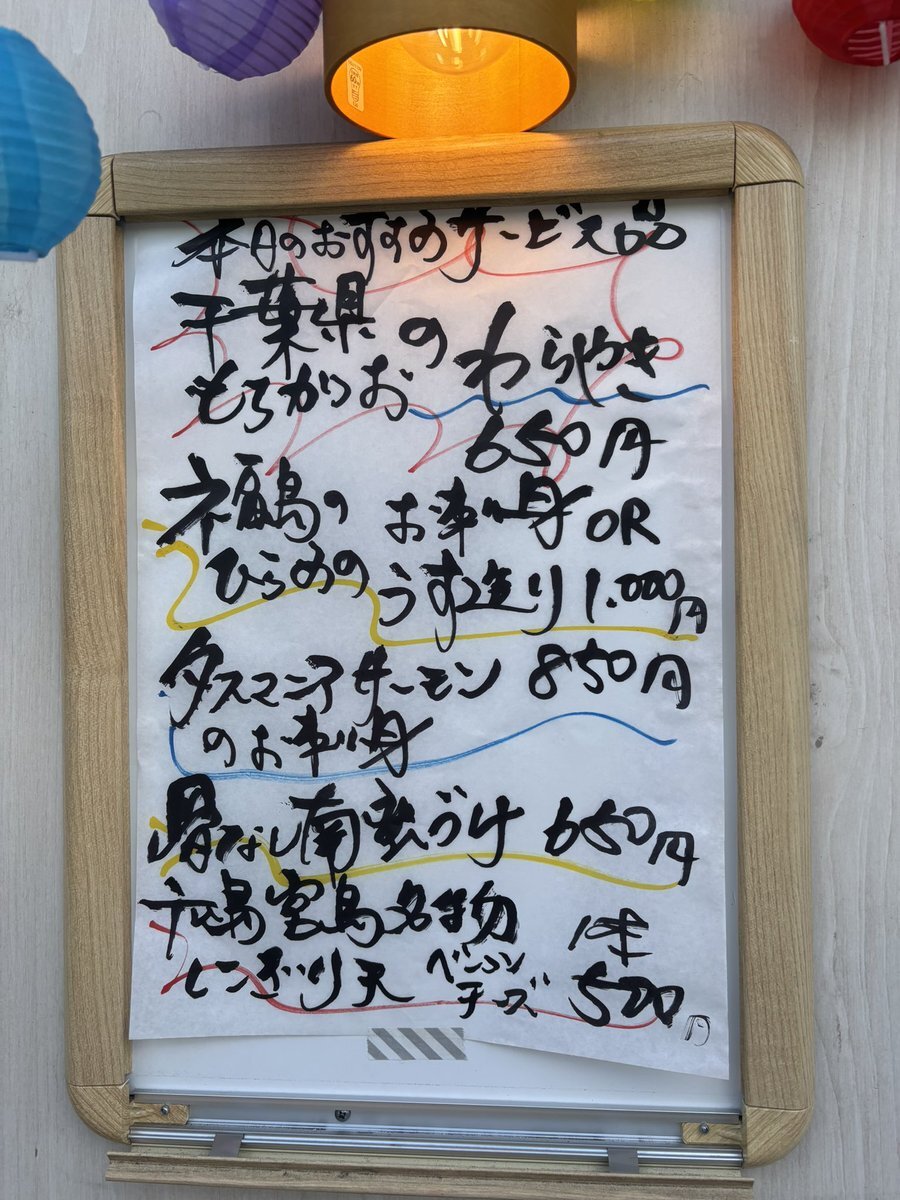 本日のおすすめサービス品
千葉県の わらやき
もろかつお
650円
福島の お刺身 OR
ひらめの うす造り 1.000円
タスマニアサーモン 850円
のお刺身
骨なし南蛮づけ 650円
広島宮島名物
ベーコン 1本
にぎり天 チーズ 500円